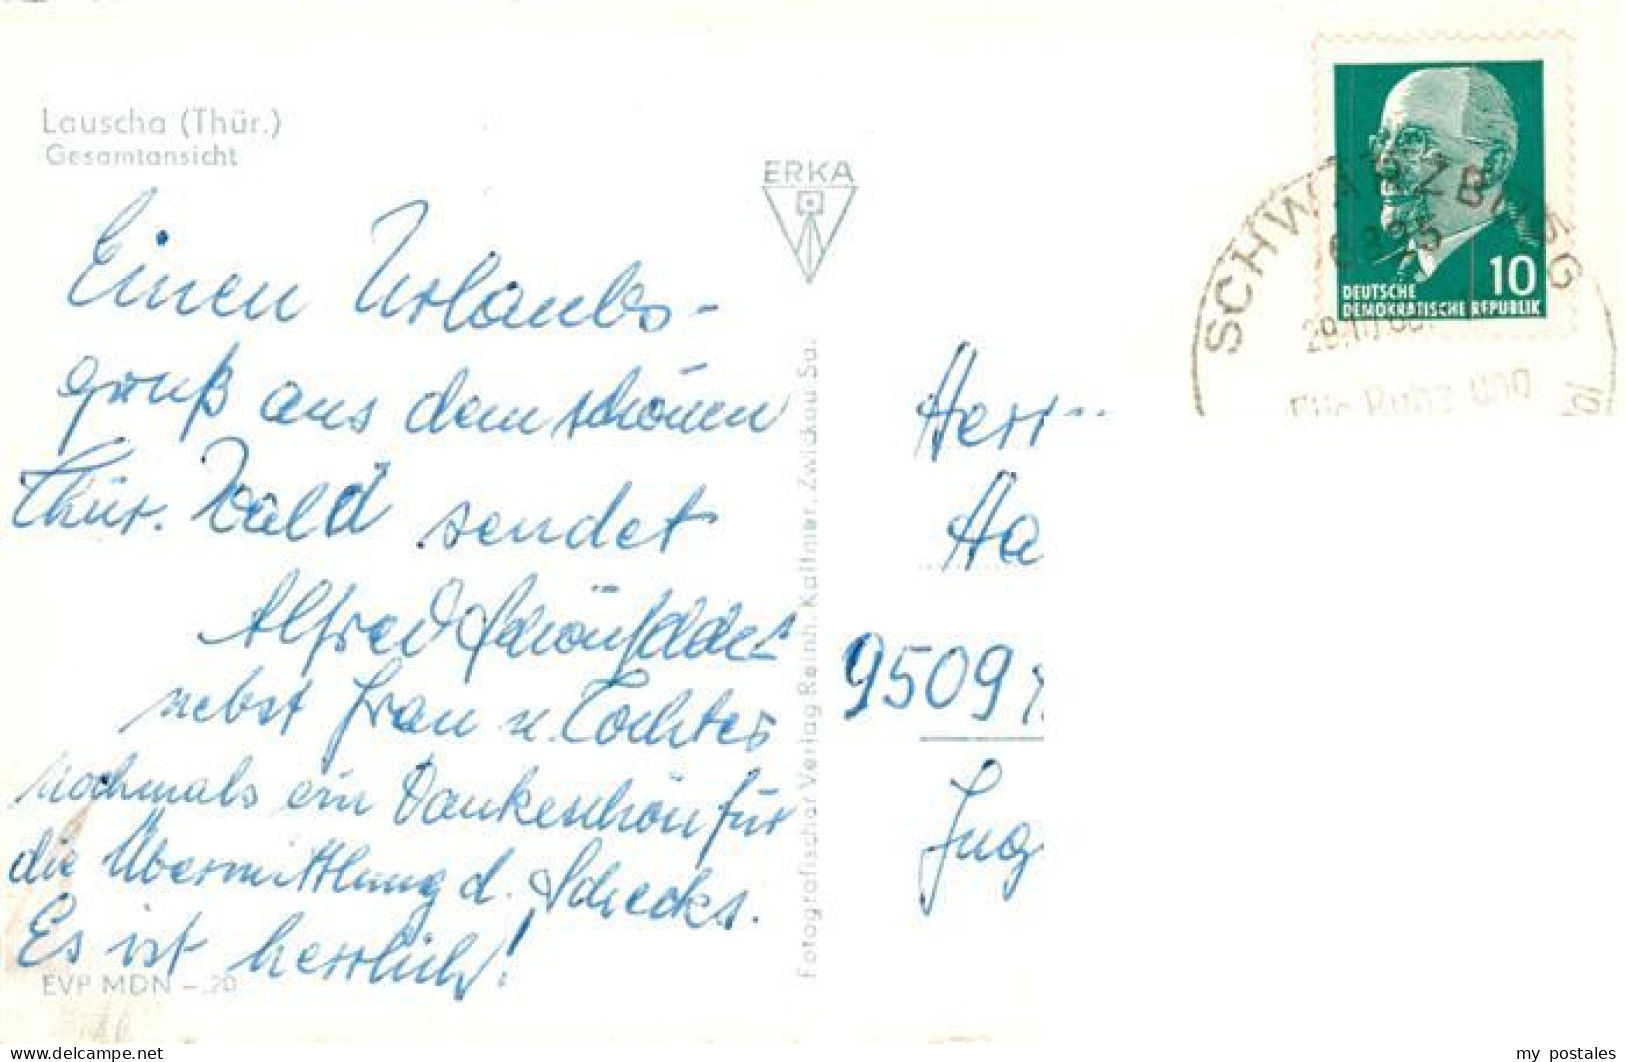 Lauscha (Thür.)
Gesamtansicht
ERKA
Einen Urlaubs-
gruß aus dem schönen
Thür. Wald sendet
Alfred
nebst Frau u. Tochter
nochmals ein Dankeschön für
die Übermittlung d. Schecks.
Es ist herrlich!
EVP MDN -.20
Fotografischer Verlag Reinh. Kallmer, Zwickau Sa.
SCHWARZBURG
6825
29.10.
Für Ruhe und
10
DEUTSCHE
DEMOKRATISCHE REPUBLIK
Herr
Ha
9509
Jug
my_postales